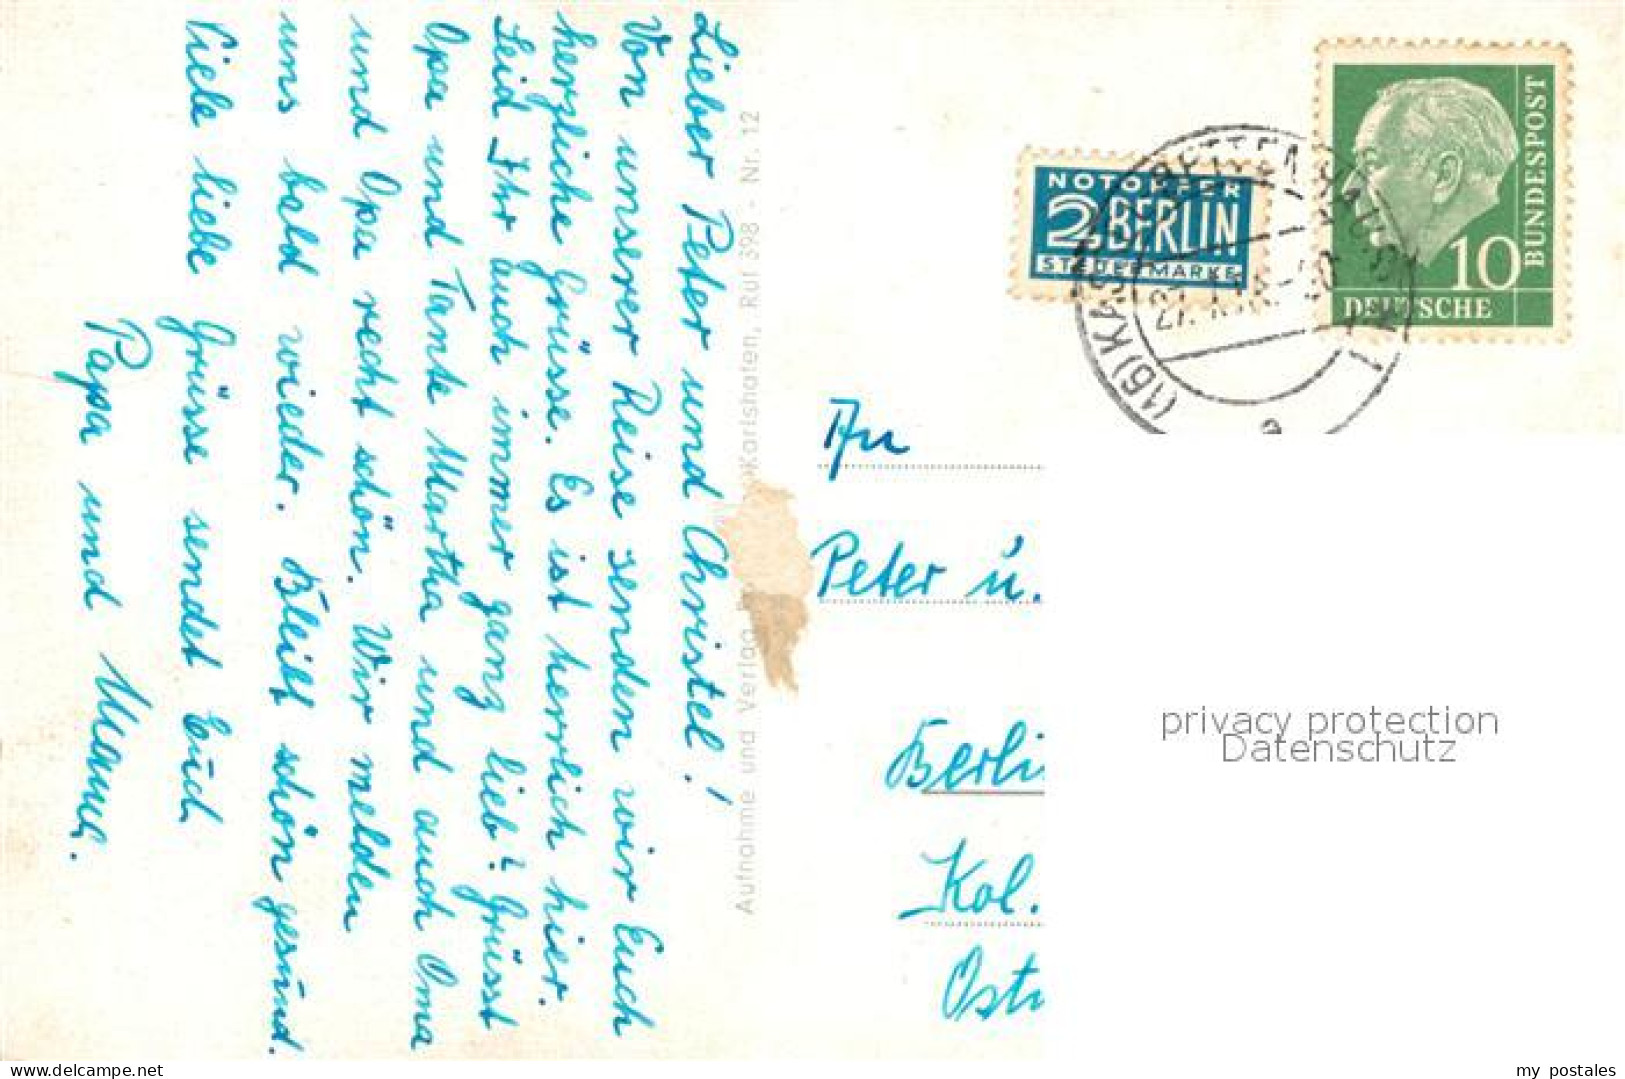 Lieber Peter und Christel!
Von unserer Reise senden wir Euch
herzliche Grüsse. Es ist herrlich hier.
Seid Ihr auch immer ganz lieb? Grüsst
Opa und Tante Martha und auch Oma
und Opa recht schön. Wir melden
uns bald wieder. Bleibt schön gesund.
Viele liebe Grüsse sendet Euch
Papa und Mama.
Aufnahme und Verlag Karlshafen, Ruf 398 - Nr. 12
NOTOPFER
2 BERLIN
STEUERMARKE
BUNDESPOST
10
DEUTSCHE
(16) KASSEL
An
Peter u.
Berli
Kol.
Ost
privacy protection
Datenschutz
les-cartes.com
my_postales